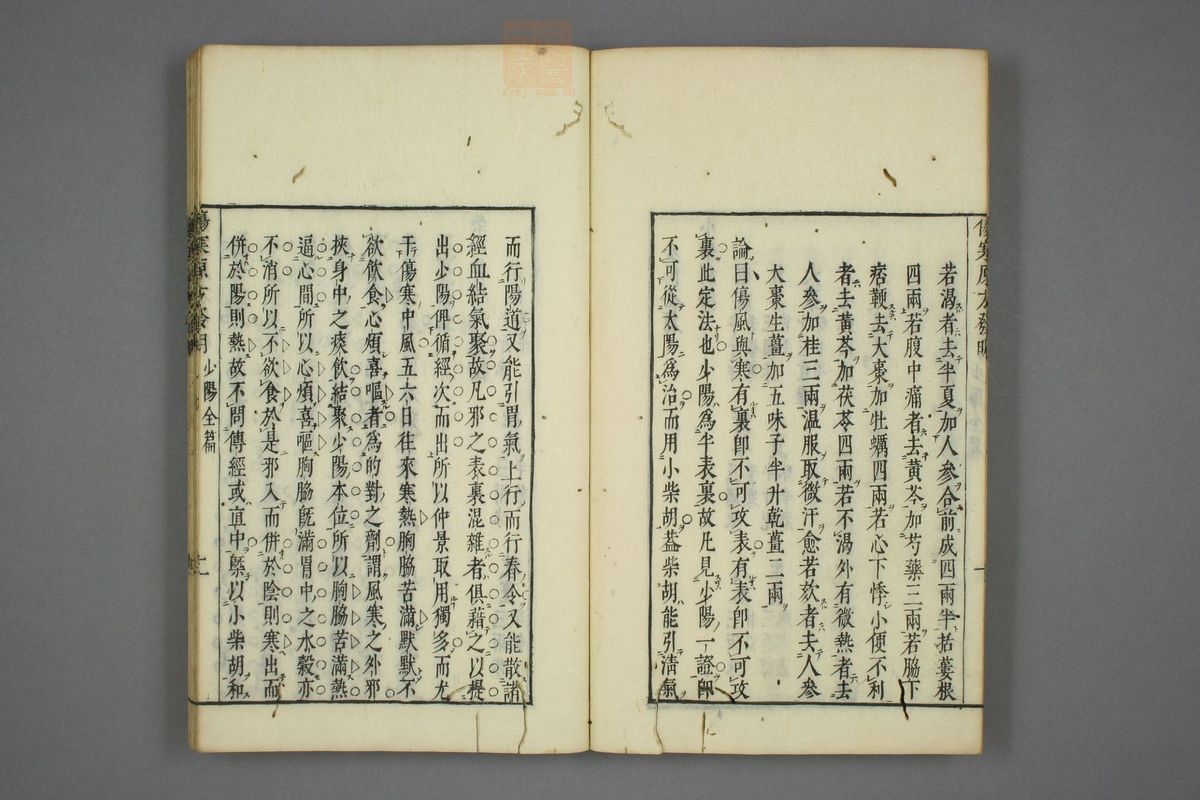 若渴者去半夏加人參合前成四兩半栝蔞根
四兩若腹中痛者去黃芩加芍藥三兩若脇下
痞鞕去大棗加牡蠣四兩若心下悸小便不利
者去黃芩加茯苓四兩若不渴外有微熱者去
人參加桂三兩溫服取微汗愈若欬者去人參
大棗生薑加五味子半升乾薑二兩
論曰傷風與寒有裏卽不可攻表有表卽不可攻
裏此定法也少陽爲半表裏故凡見少陽一證卽
不可從太陽爲治而用小柴胡葢柴胡能引淸氣
而行陽道又能引胃氣上行而行春令又能散諸
經血結氣聚故凡邪之表裏混雜者俱藉之以提
出少陽俾循經次而出所以仲景取用獨多而尤
于傷寒中風五六日往來寒熱胸脇苦滿默默不
欲飲食心煩喜嘔者爲的對之劑謂風寒之外邪
挾身中之痰飲結聚少陽本位所以胸脇苦滿熱
逼心間所以心煩喜嘔胸脇旣滿胃中之水穀亦
不消所以不欲食於是邪入而併於陰則寒出而
併於陽則熱故不問傳經或直中槩以小柴胡和
傷寒原方發明 少陽全篇